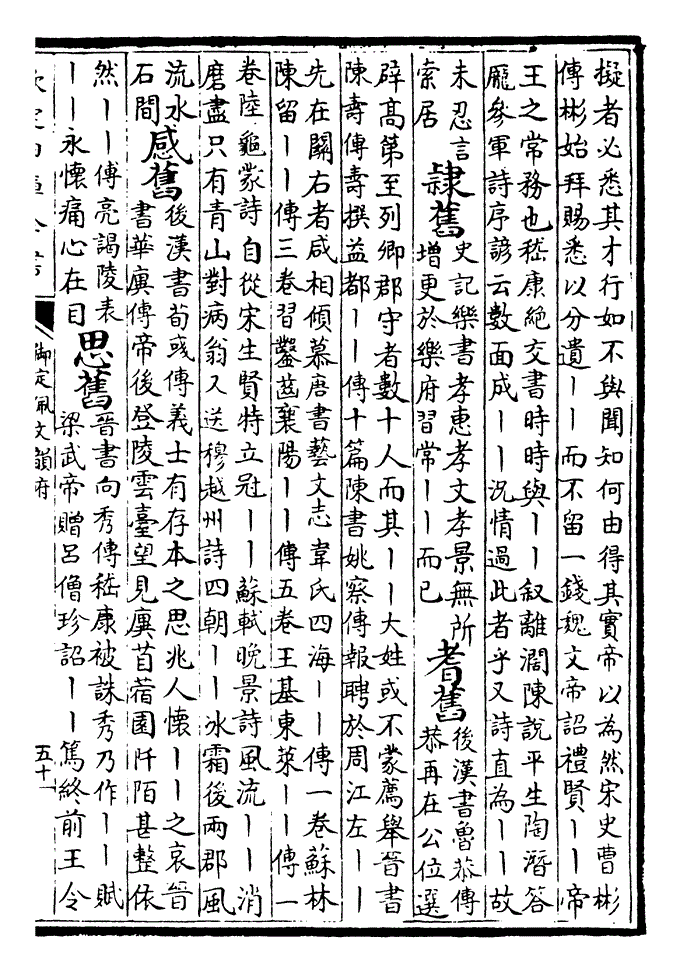 擬者必悉其才行如不與聞知何由得其實帝以為然宋史曹彬
傳彬始拜賜悉以分遺丨丨而不留一錢魏文帝詔禮賢丨丨帝
王之常務也嵇康絶交書時時與丨丨叙離濶陳說平生陶潛答
龐參軍詩序諺云數面成丨丨況情過此者乎又詩直為丨丨故
未忍言
索居
隷舊
史記樂書孝惠孝文孝景無所
增更於樂府習常丨丨而已
耆舊
後漢書魯恭傳
恭再在公位選
辟高第至列卿郡守者數十人而其丨丨大姓或不蒙薦舉晉書
陳壽傳壽撰益都丨丨傳十篇陳書姚察傳報聘於周江左丨丨
先在關右者咸相傾慕唐書藝文志韋氏四海丨丨傳一卷蘇林
陳留丨丨傳三卷習鑿齒襄陽丨丨傳五卷王基東萊丨丨傳一
卷陸龜蒙詩自從宋生賢特立冠丨丨蘇軾晚景詩風流丨丨消
磨盡只有青山對病翁又送穆越州詩四朝丨丨冰霜後兩郡風
流水
石間
感舊
後漢書荀彧傳義士有存本之思兆人懷丨丨之哀晉
書華廙傳帝後登陵雲臺望見廙苜蓿園阡陌甚整依
然丨丨傅亮謁陵表
丨丨永懷痛心在目
思舊
晉書向秀傳嵇康被誅秀乃作丨丨賦
梁武帝贈呂僧珍詔丨丨篤終前王令
欽定四庫全書
御定佩文韻府
五十一